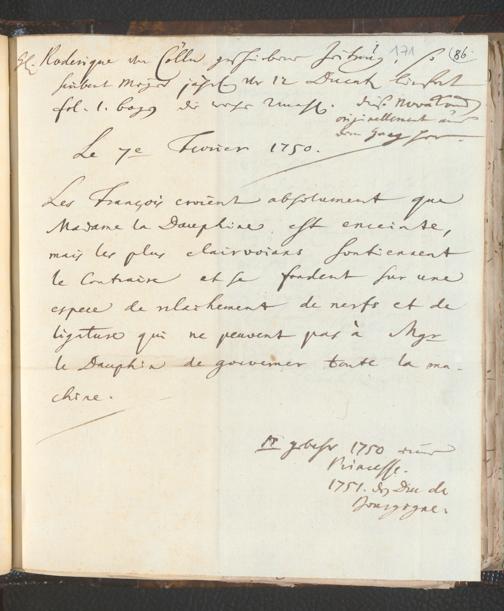 171 86.
Roderique in Cölln geschriebene Zeitung, so
jährl. der 12 Ducat liefert
fol. 1.
originellement aus
dem Haag
Le 7e Fevrier 1750.
Les François croient absolument que
Madame la Dauphine est enceinte,
mais les plus clairvoians soutiennent
le Contraire et se fondent sur une
espece de relachement de nerfs et de
ligature qui ne peuvent pas à Mgr
le Dauphin de gouverner toute la ma-
chine.
gebahr 1750 eine
Princesse.
1751. den Duc de
Bourgogne.